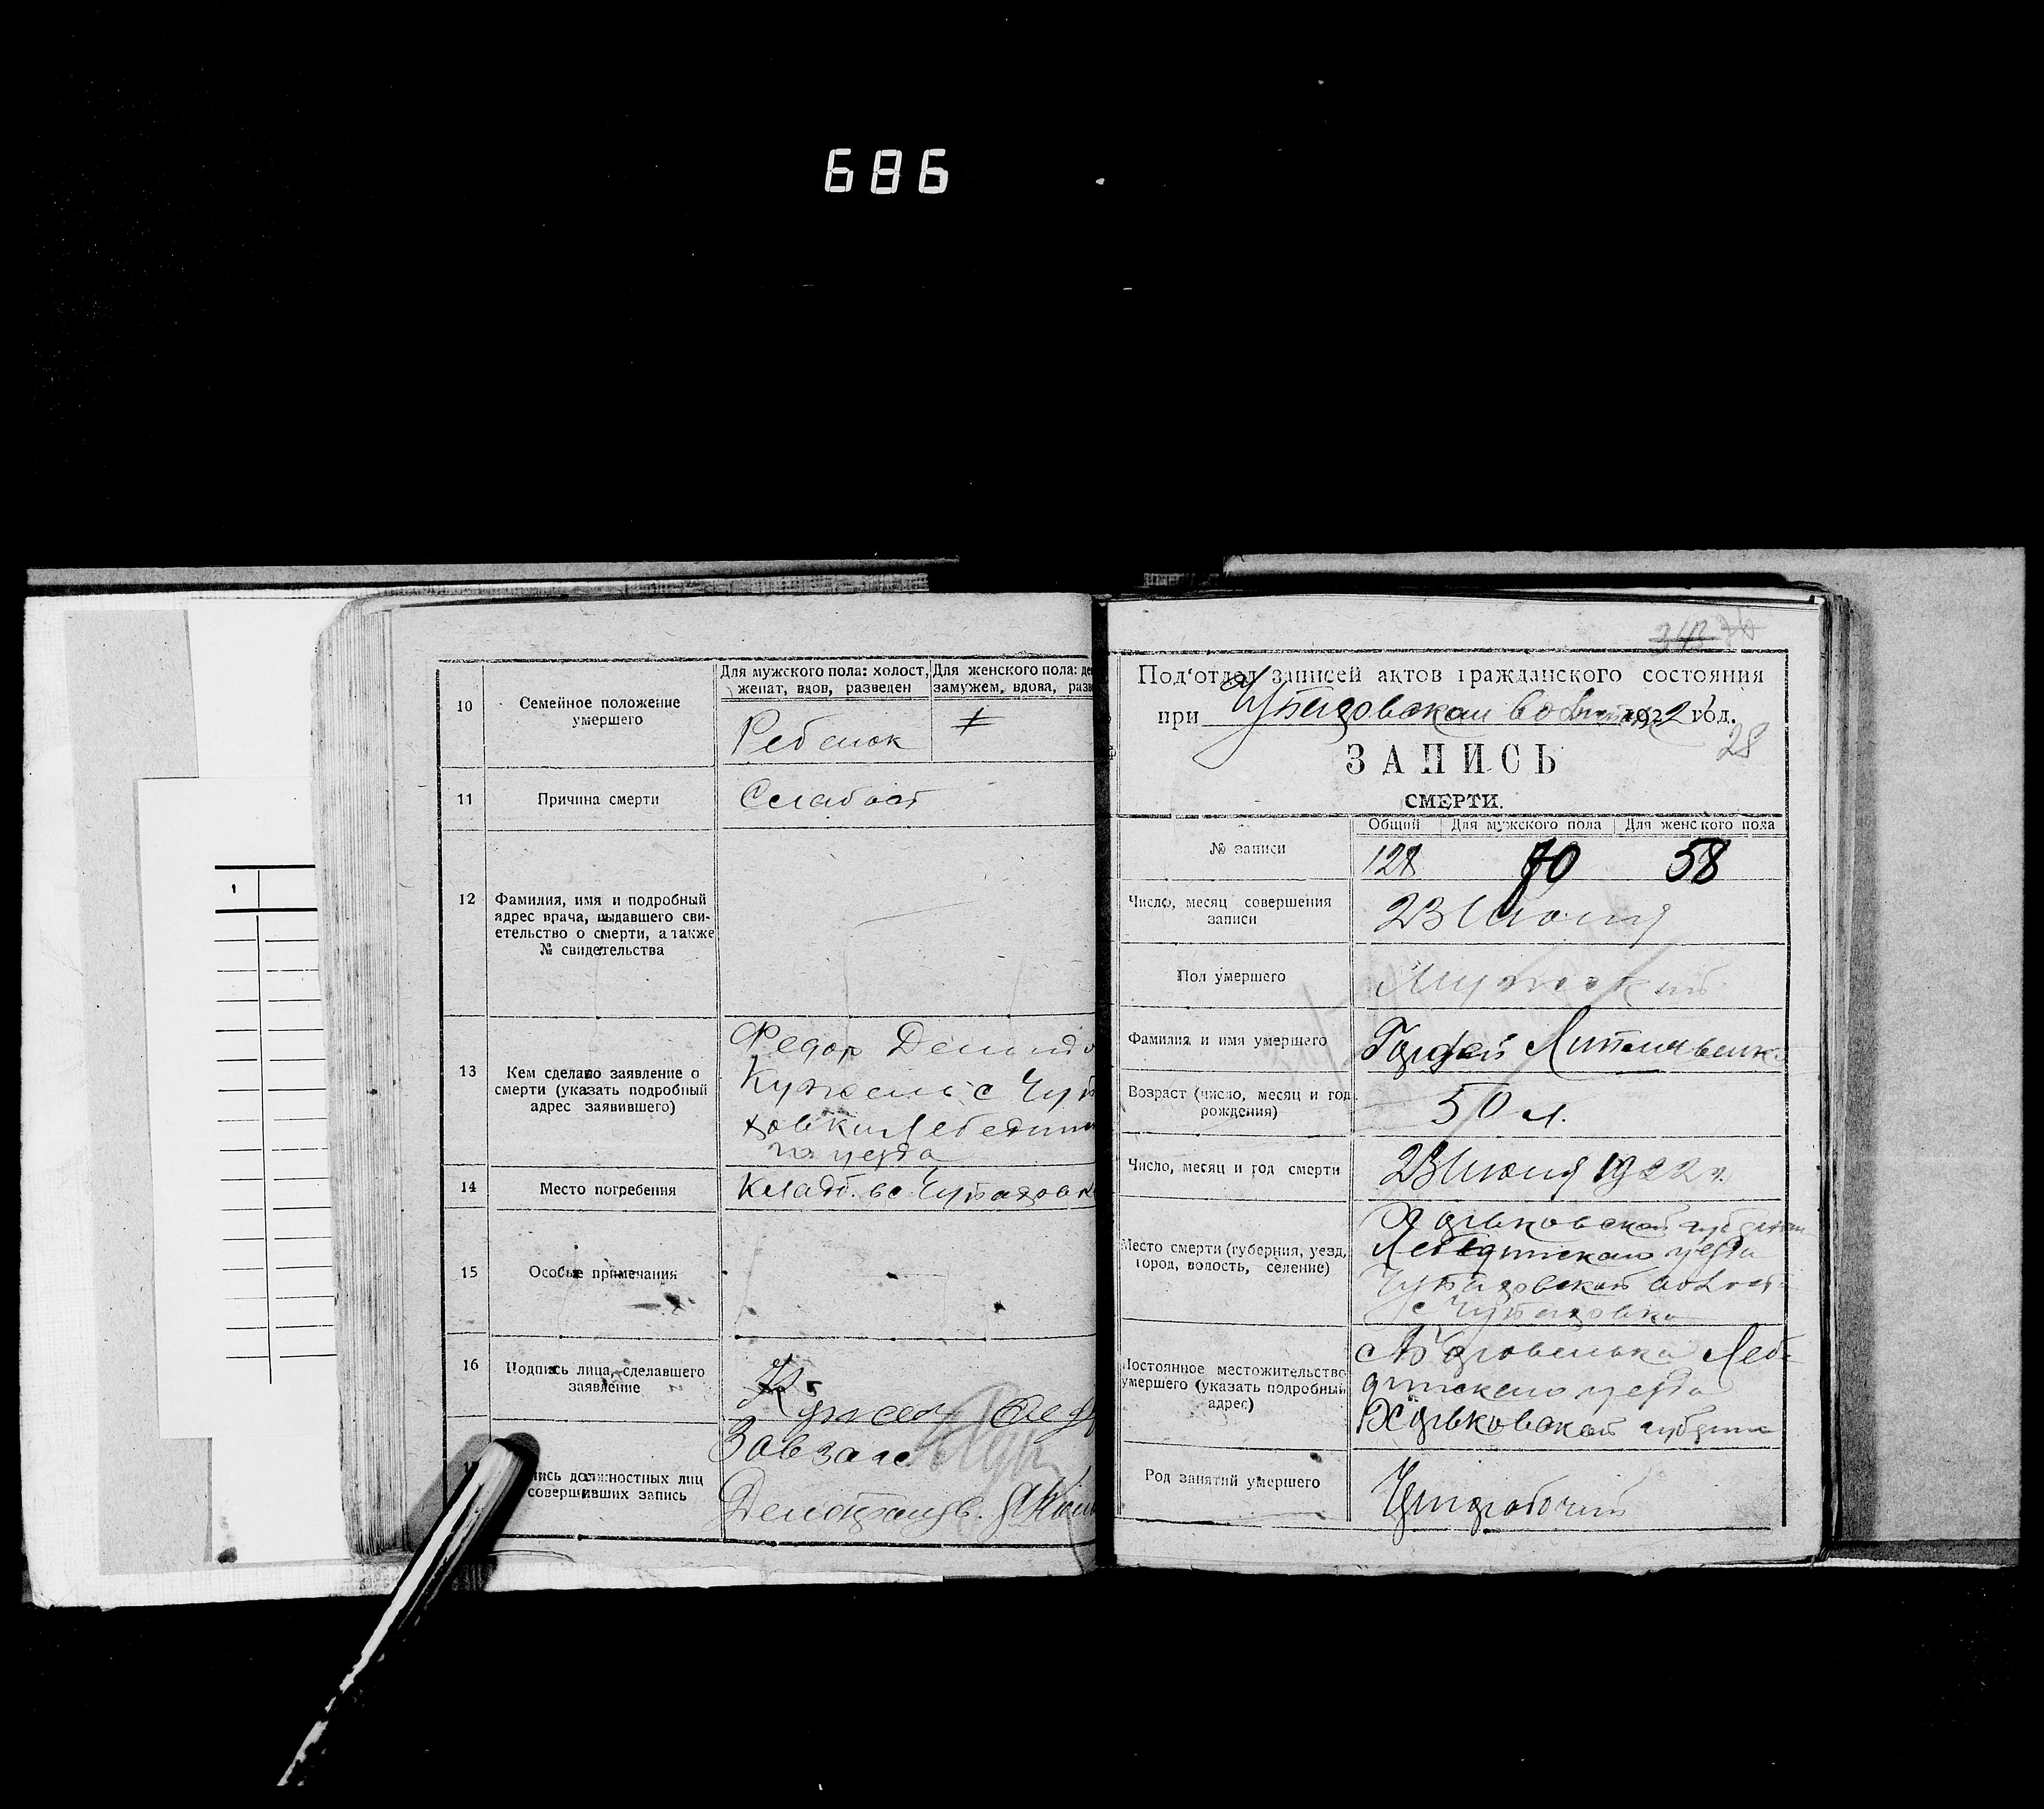 686
10
Семейное положение
умершего
Для мужского пола: холост,
женат, вдов, разведен
Для женского пола: де
замужем, вдова, разв
Ребенок
11
Причина смерти
Слабост
12
Фамилия, имя и подробный
адрес врача, выдавшего сви-
етельство о смерти, а также
№ свидетельства
13
Кем сделано заявление о
смерти (указать подробный
адрес заявившего)
Федор
Кужель с
Лебедин
го уезда
14
Место погребения
Кладб. в с.
15
Особые примечания
16
Подпись лица, сделавшего
заявление
ись должностных лиц
совершивших запись
Завзагс
Делопроизв.
343
Под‘отдел записей актов гражданского состояния
при 1922 год.
28
ЗАПИСЬ
СМЕРТИ.
Общий
Для мужского пола
Для женского пола
№ записи
128
70
58
Число, месяц совершения
записи
23 Июня
Пол умершего
Мужской
Фамилия и имя умершего
Литвинвенк
Возраст (число, месяц и год
рождения)
50 л.
Число, месяц и год смерти
23 Июня 1922 г.
Место смерти (губерния, уезд,
город, волость, селение)
Харьковской губернии
Лебединского уезда
волост
с
Постоянное местожительство
умершего (указать подробный
адрес)
Леб-
динского уезда
Харьковской губернии
Род занятий умершего
Чернорабочий